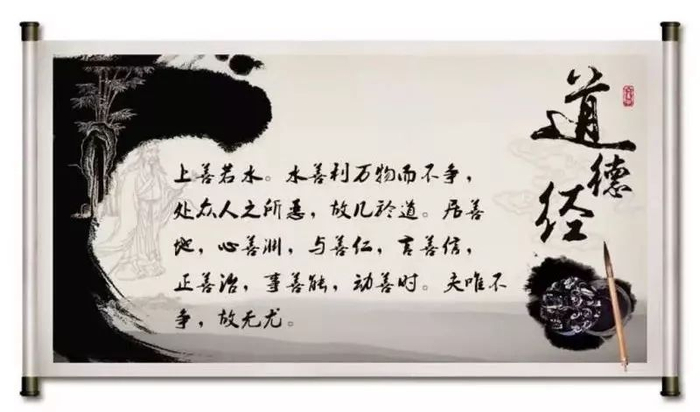 上善若水。水善利万物而不争，
处众人之所恶，故几於道。居善
地，心善渊，与善仁，言善信，
正善治，事善能，动善时。夫唯不
争，故无尤。
道德经